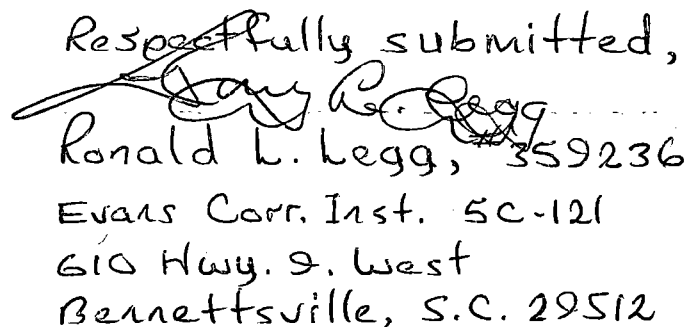 Respectfully submitted,
Legg
Ronald L. Legg, #359236
Evans Corr. Inst. 5C-121
610 Hwy. 9. West
Bennettsville, S.C. 29512